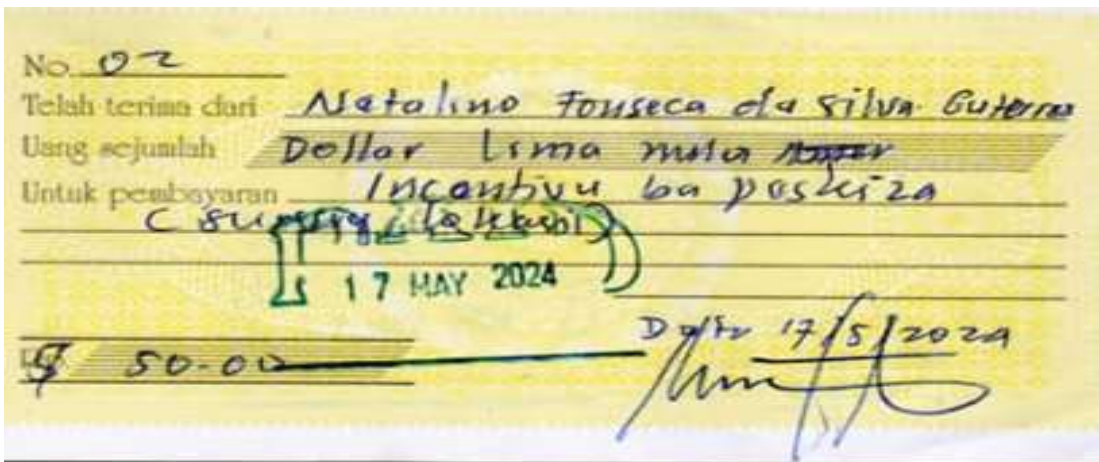 No. 02
Telah terima dari Natalino Fonseca da Silva Guterres
Uang sejumlah Dollar Lima
Untuk pembayaran Incentivu ba peskiza
17 MAY 2024
17/5/2024
$ 50.00